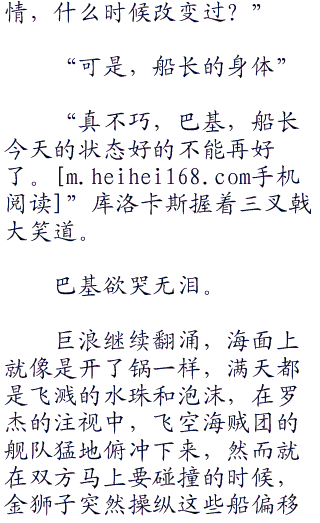 情，什么时候改变过？”
“可是，船长的身体”
“真不巧，巴基，船长
今天的状态好的不能再好
了。[m.heihei168.com手机
阅读]”库洛卡斯握着三叉戟
大笑道。
巴基欲哭无泪。
巨浪继续翻涌，海面上
就像是开了锅一样，满天都
是飞溅的水珠和泡沫，在罗
杰的注视中，飞空海贼团的
舰队猛地俯冲下来，然而就
在双方马上要碰撞的时候，
金狮子突然操纵这些船偏移